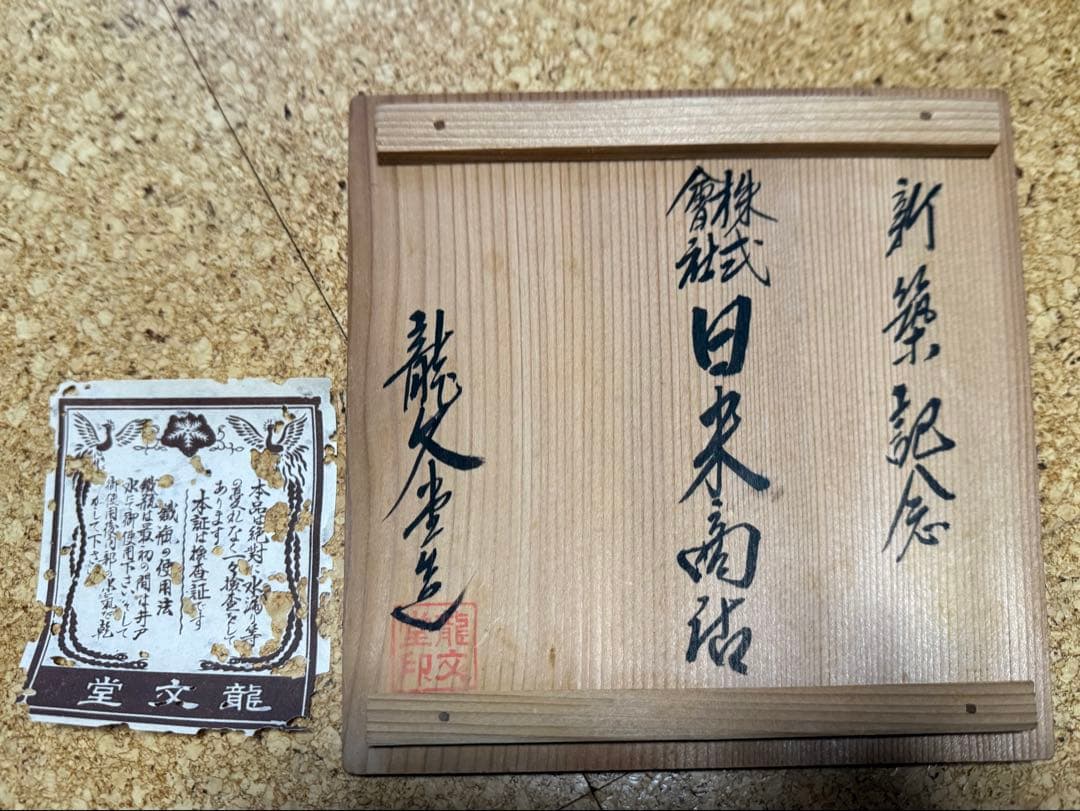 新築記念
株式
會社
日米商店
龍文堂造
龍文
堂印
本品は絶対に水漏り等
の憂れなく一々検査をして
あります
本証は検査証です
鉄瓶の使用法
鐵瓶は最初の間は井戸
水に御使用下さいそして
御使用後内部の水氣を乾
かして下さい
龍文堂